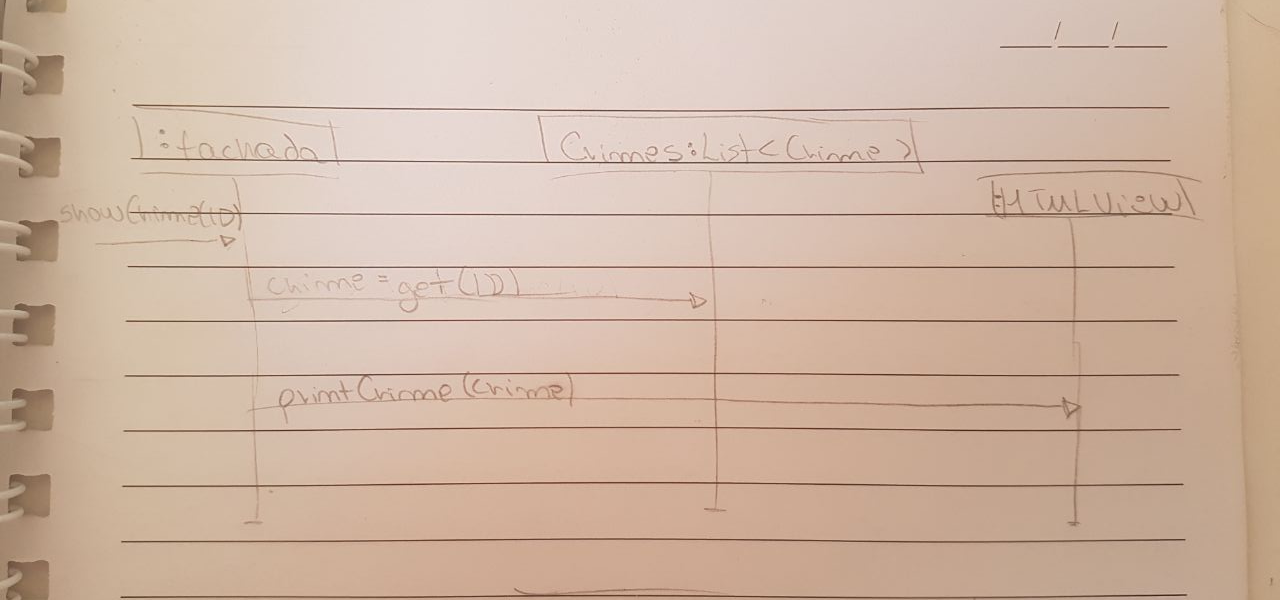 :fachada
Crimes:List<Crime>
:HTMLView
showCrime(ID)
crime = get(ID)
printCrime(crime)